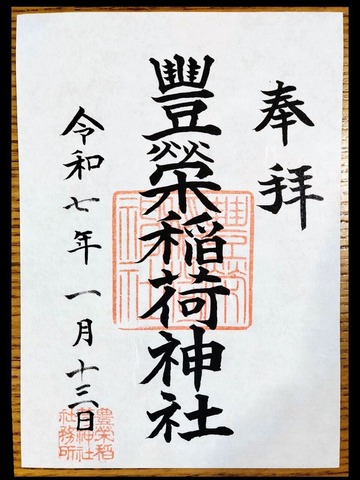 奉拝
豐榮稲荷神社
令和七年一月十三日
豊栄稲
荷神社
社務所